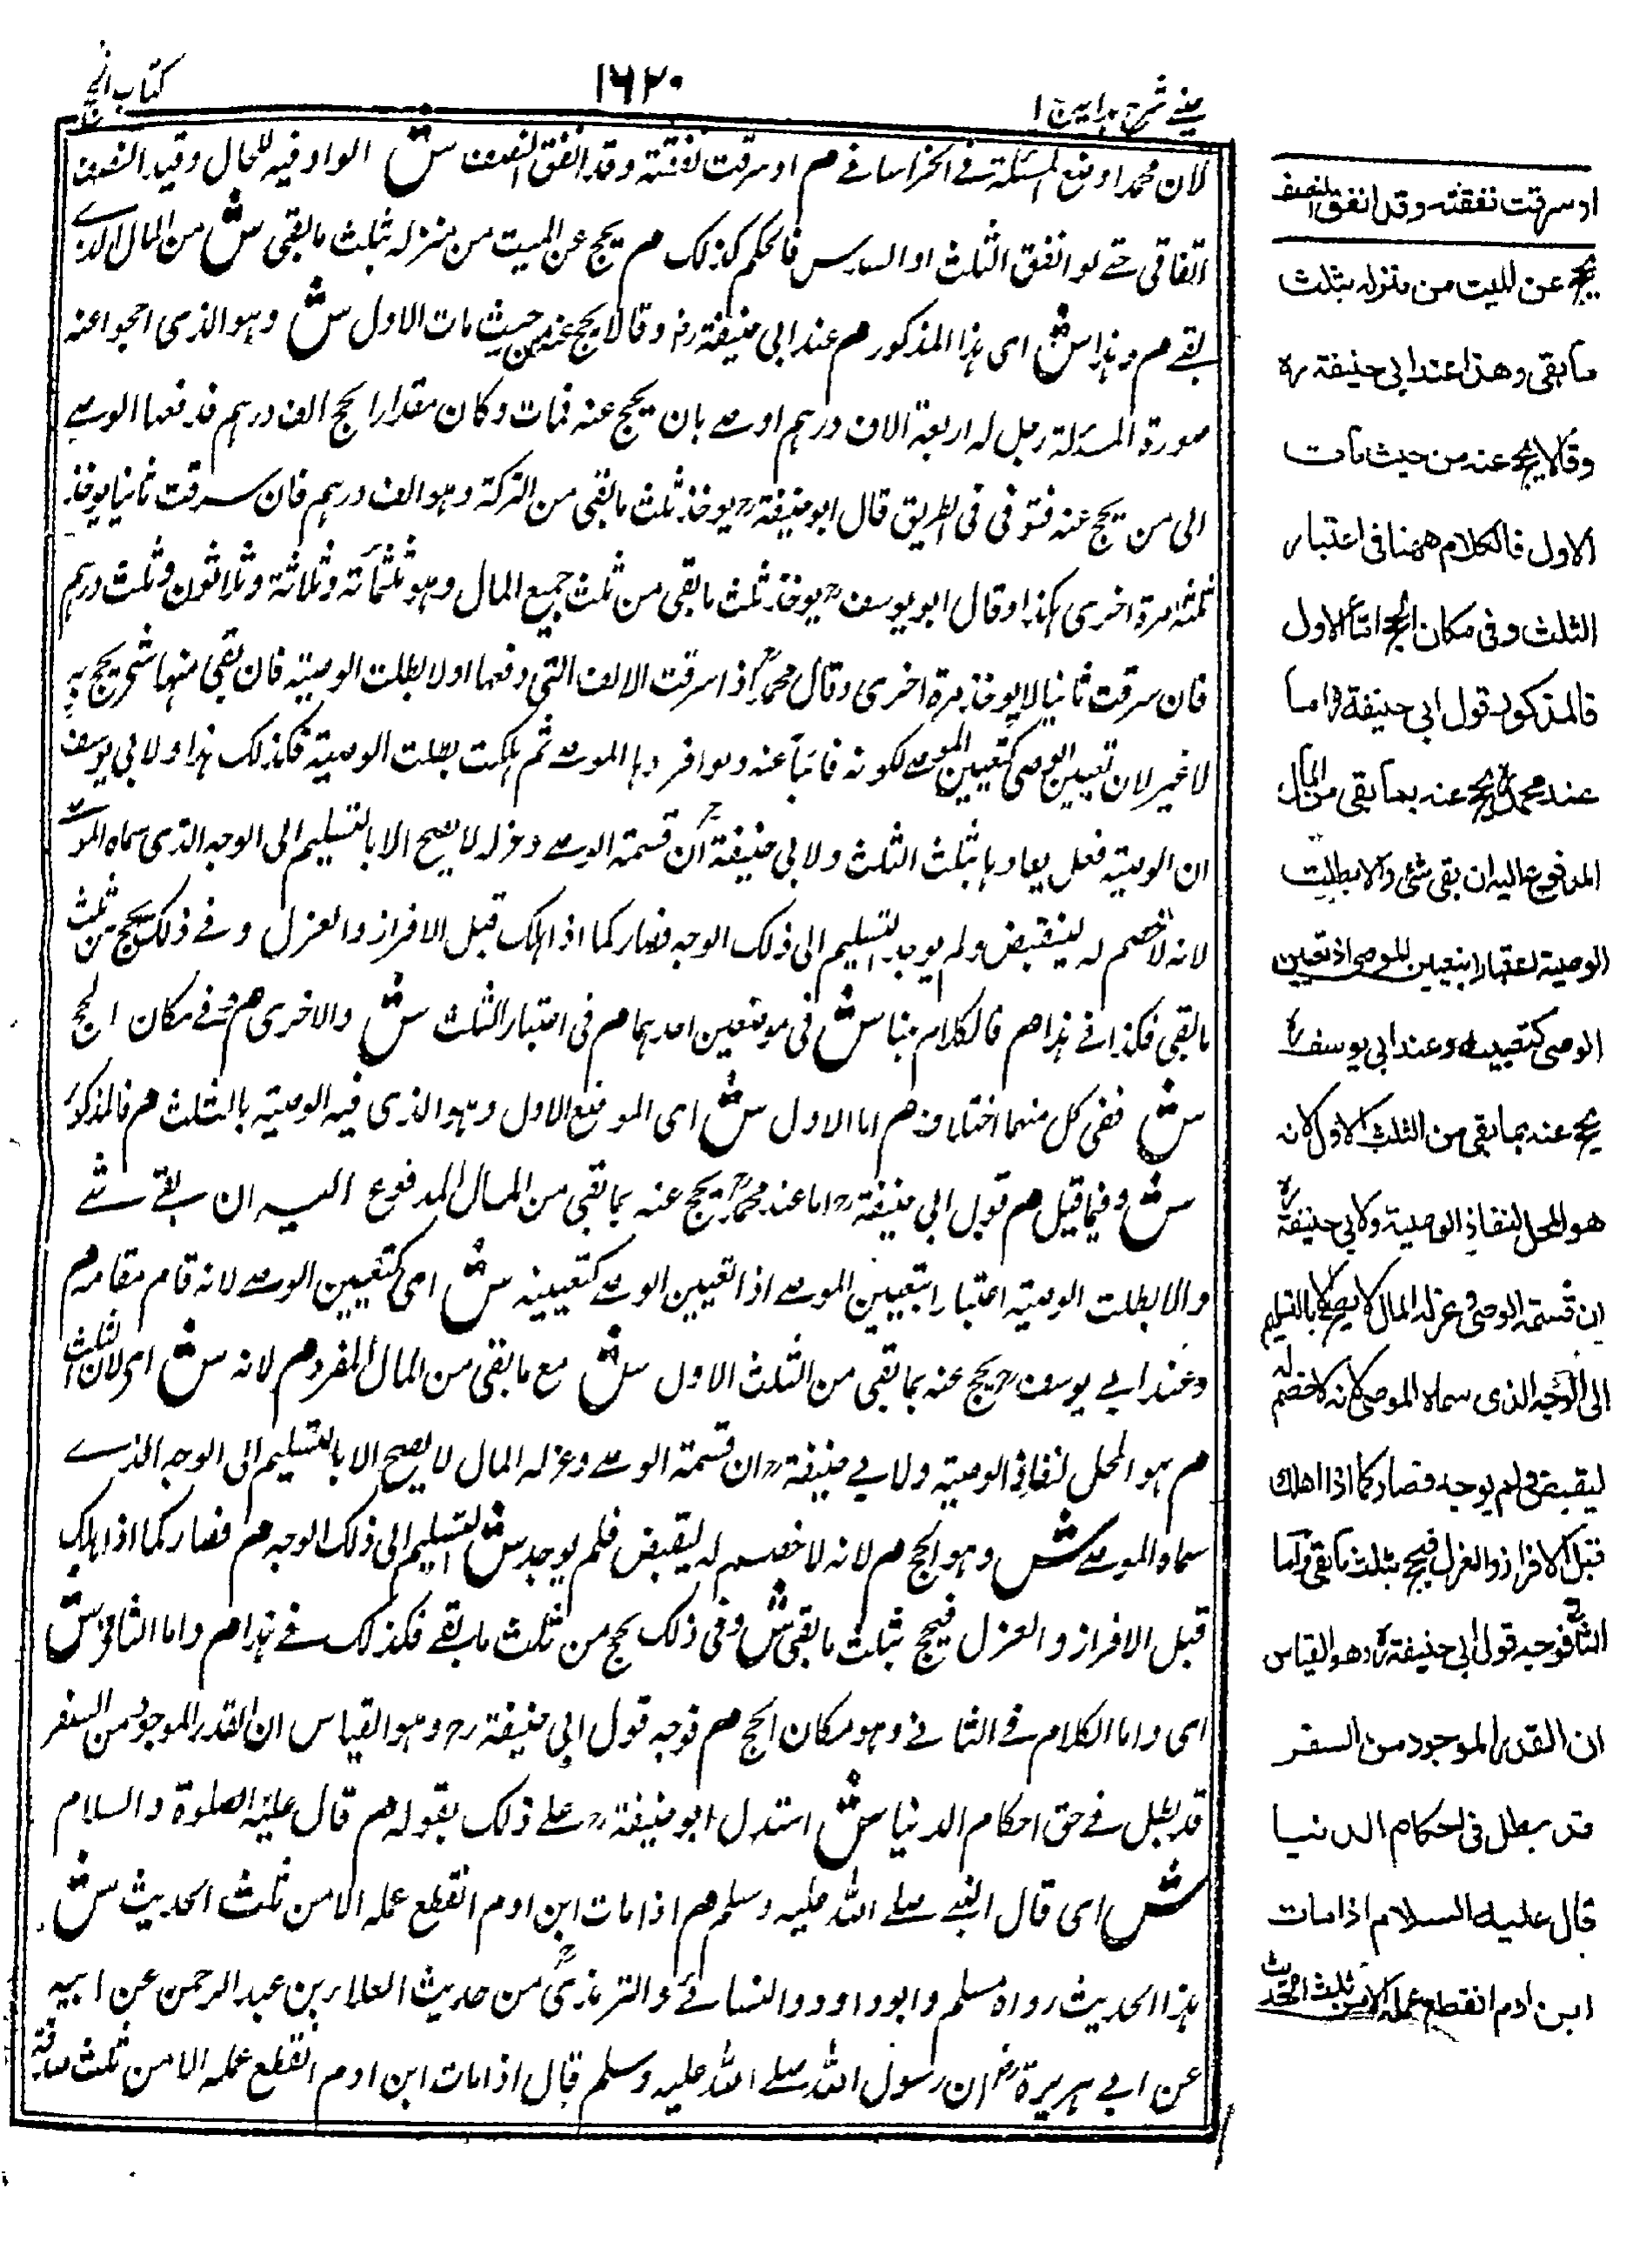 عينى شرح هداية ج ١
١٦٢٠
كتاب الحج
لان محمدا وضع المسئلة فى الخراسانى م او سرقت نفقته وقد انفق النصف ش الواو فيه للحال وقيد النصف
اتفاقى حتى لو انفق الثلث او السدس فالحكم كذلك م يحج عن الميت من منزله بثلث ما بقى ش من المال الذى
بقى م وهذا ش اى هذا المذكور م عند ابى حنيفة رح وقالا يحج عنه من حيث مات الاول ش وهو الذى احجوا عنه
صورة المسئلة رجل له اربعة الاف درهم اوصى بان يحج عنه فمات وكان مقدار الحج الف درهم فدفعها الوصى
الى من يحج عنه فتوفى فى الطريق قال ابو حنيفة رح يوخذ ثلث ما بقى من التركة وهو الف درهم فان سرقت ثانيا يوخذ
ثلثه مرة اخرى هكذا وقال ابو يوسف رح يوخذ ثلث ما بقى من ثلث جميع المال وهو ثلثمائة وثلاثة وثلاثون وثلث درهم
فان سرقت ثانيا لا يوخذ مرة اخرى وقال محمد رح اذا سرقت الالف التى دفعها اولا بطلت الوصية فان بقى منها شئ يحج به
لا غير لان تعيين الوصى كتعيين الموصى لكونه نائبا عنه ولو افردها الموصى ثم هلكت بطلت الوصية فكذلك هذا ولابى يوسف
ان الوصية فعل يعاد بثلث الثلث ولابى حنيفة رح ان قسمة الوصى وعزله لا يصح الا بالتسليم الى الوجه الذى سماه الموصى
لانه لا خصم له ليقبض ولم يوجد التسليم الى ذلك الوجه فصار كما اذا هلك قبل الافراز والعزل وفى ذلك يحج من ثلث
ما بقى فكذا فى هذا م فالكلام هنا ش فى موضعين احدهما م فى اعتبار الثلث ش والاخرى م وفى مكان الحج
ش ففى كل منهما اختلاف م اما الاول ش اى الموضع الاول وهو الذى فيه الوصية بالثلث م فالمذكور
ش وفيما قيل م قول ابى حنيفة رح اما عند محمد رح يحج عنه بما بقى من المال المدفوع اليه ان بقى شئ
والا بطلت الوصية اعتبارا بتعيين الموصى اذ تعيين الوصى كتعيينه ش اى كتعيين الوصى لانه قام مقامه م
وعند ابى يوسف رح يحج عنه بما بقى من الثلث الاول ش مع ما بقى من المال المفرد م لانه ش اى لان الثلث
م هو المحل لنفاذ الوصية ولابى حنيفة رح ان قسمة الوصى وعزله المال لا يصح الا بالتسليم الى الوجه الذى
سماه الموصى ش وهو الحج م لانه لا خصم له ليقبض فلم يوجد ش التسليم الى ذلك الوجه م فصار كما اذا هلك
قبل الافراز والعزل فيحج بثلث ما بقى ش وفى ذلك يحج من ثلث ما بقى فكذلك فى هذا م واما الثانى ش
اى واما الكلام فى الثانى وهو مكان الحج م فوجه قول ابى حنيفة رح وهو القياس ان القدر الموجود من السفر
قد بطل فى حق احكام الدنيا ش استدل ابو حنيفة رح على ذلك بقوله م قال عليه الصلوة والسلام
ش اى قال النبى صلى الله عليه وسلم م اذا مات ابن ادم انقطع عمله الا من ثلث الحديث ش
هذا الحديث رواه مسلم وابو داود والنسائى والترمذى رح من حديث العلاء بن عبد الرحمن عن ابيه
عن ابى هريرة رض ان رسول الله صلى الله عليه وسلم قال اذا مات ابن ادم انقطع عمله الا من ثلث صدقة
او سرقت نفقته وقد انفق النصف
يحج عن الميت من منزله بثلث
ما بقى وهذا عند ابى حنيفة رح
وقالا يحج عنه من حيث مات
الاول فالكلام ههنا فى اعتبار
الثلث وفى مكان الحج اما الاول
فالمذكور قول ابى حنيفة رح اما
عند محمد رح يحج عنه بما بقى من المال
المدفوع اليه ان بقى شئ والا بطلت
الوصية اعتبارا بتعيين الموصى اذ تعيين
الوصى كتعيينه وعند ابى يوسف رح
يحج عنه بما بقى من الثلث الاول لانه
هو المحل لنفاذ الوصية ولابى حنيفة رح
ان قسمة الوصى وعزله المال لا يصح الا بالتسليم
الى الوجه الذى سماه الموصى لانه لا خصم له
ليقبض فلم يوجد فصار كما اذا هلك
قبل الافراز والعزل فيحج بثلث ما بقى واما
الثانى فوجه قول ابى حنيفة رح وهو القياس
ان القدر الموجود من السفر
قد بطل فى احكام الدنيا
قال عليه السلام اذا مات
ابن ادم انقطع عمله الا من ثلث الحديث